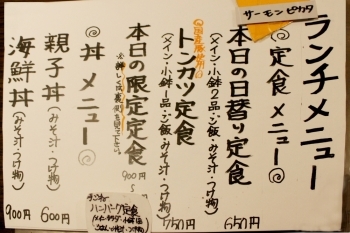 サーモンピカタ
ランチメニュー
◎定食メニュー◎
本日の日替り定食
(メイン・小鉢2品・ご飯・みそ汁・つけ物)
650円
国産豚使用
トンカツ定食
(メイン・小鉢1品・ご飯・みそ汁・つけ物)
750円
本日の限定定食
※詳しくは裏側を見て下さい。
900円
◎丼メニュー◎
親子丼(みそ汁・つけ物)
600円
海鮮丼(みそ汁・つけ物)
900円
ハンバーグ定食